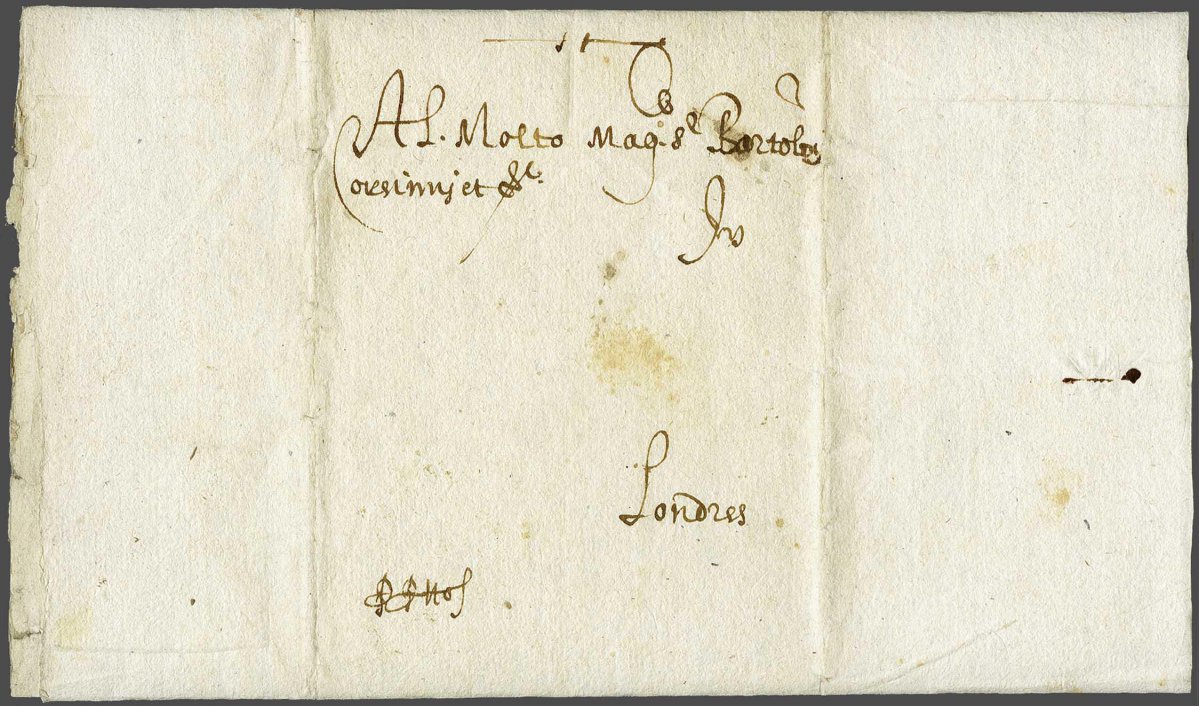 Al. Molto Mag.co S.r Bartolo
Corsinnj et &c.
In
Londres